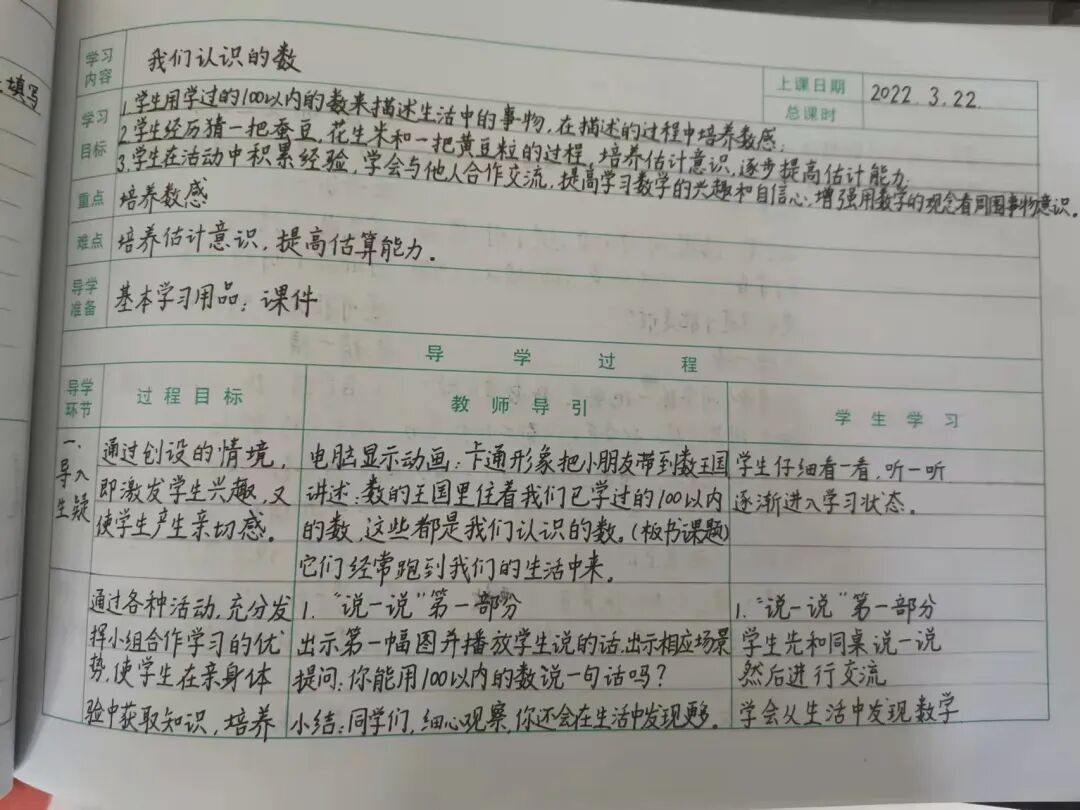 填写
学习内容 我们认识的数
上课日期 2022.3.22.
总课时
学习目标
1.学生用学过的100以内的数来描述生活中的事物,在描述的过程中培养数感;
2.学生经历猜一把蚕豆、花生米和一把黄豆粒的过程,培养估计意识,逐步提高估计能力;
3.学生在活动中积累经验,学会与他人合作交流,提高学习数学的兴趣和自信心,增强用数学的观念看周围事物意识。
重点 培养数感
难点 培养估计意识,提高估算能力。
导学准备 基本学习用品;课件
导学过程
导学环节 过程目标 教师导引 学生学习
一、导入生疑
通过创设的情境,
即激发学生兴趣,又
使学生产生亲切感。
电脑显示动画:卡通形象把小朋友带到数王国
讲述:数的王国里住着我们已学过的100以内
的数,这些都是我们认识的数。(板书课题)
它们经常跑到我们的生活中来。
学生仔细看一看,听一听
逐渐进入学习状态。
通过各种活动,充分发
挥小组合作学习的优
势,使学生在亲身体
验中获取知识,培养
1.“说一说”第一部分
出示第一幅图并播放学生说的话,出示相应场景
提问:你能用100以内的数说一句话吗?
小结:同学们,细心观察,你还会在生活中发现更多。
1.“说一说”第一部分
学生先和同桌说一说
然后进行交流
学会从生活中发现数学